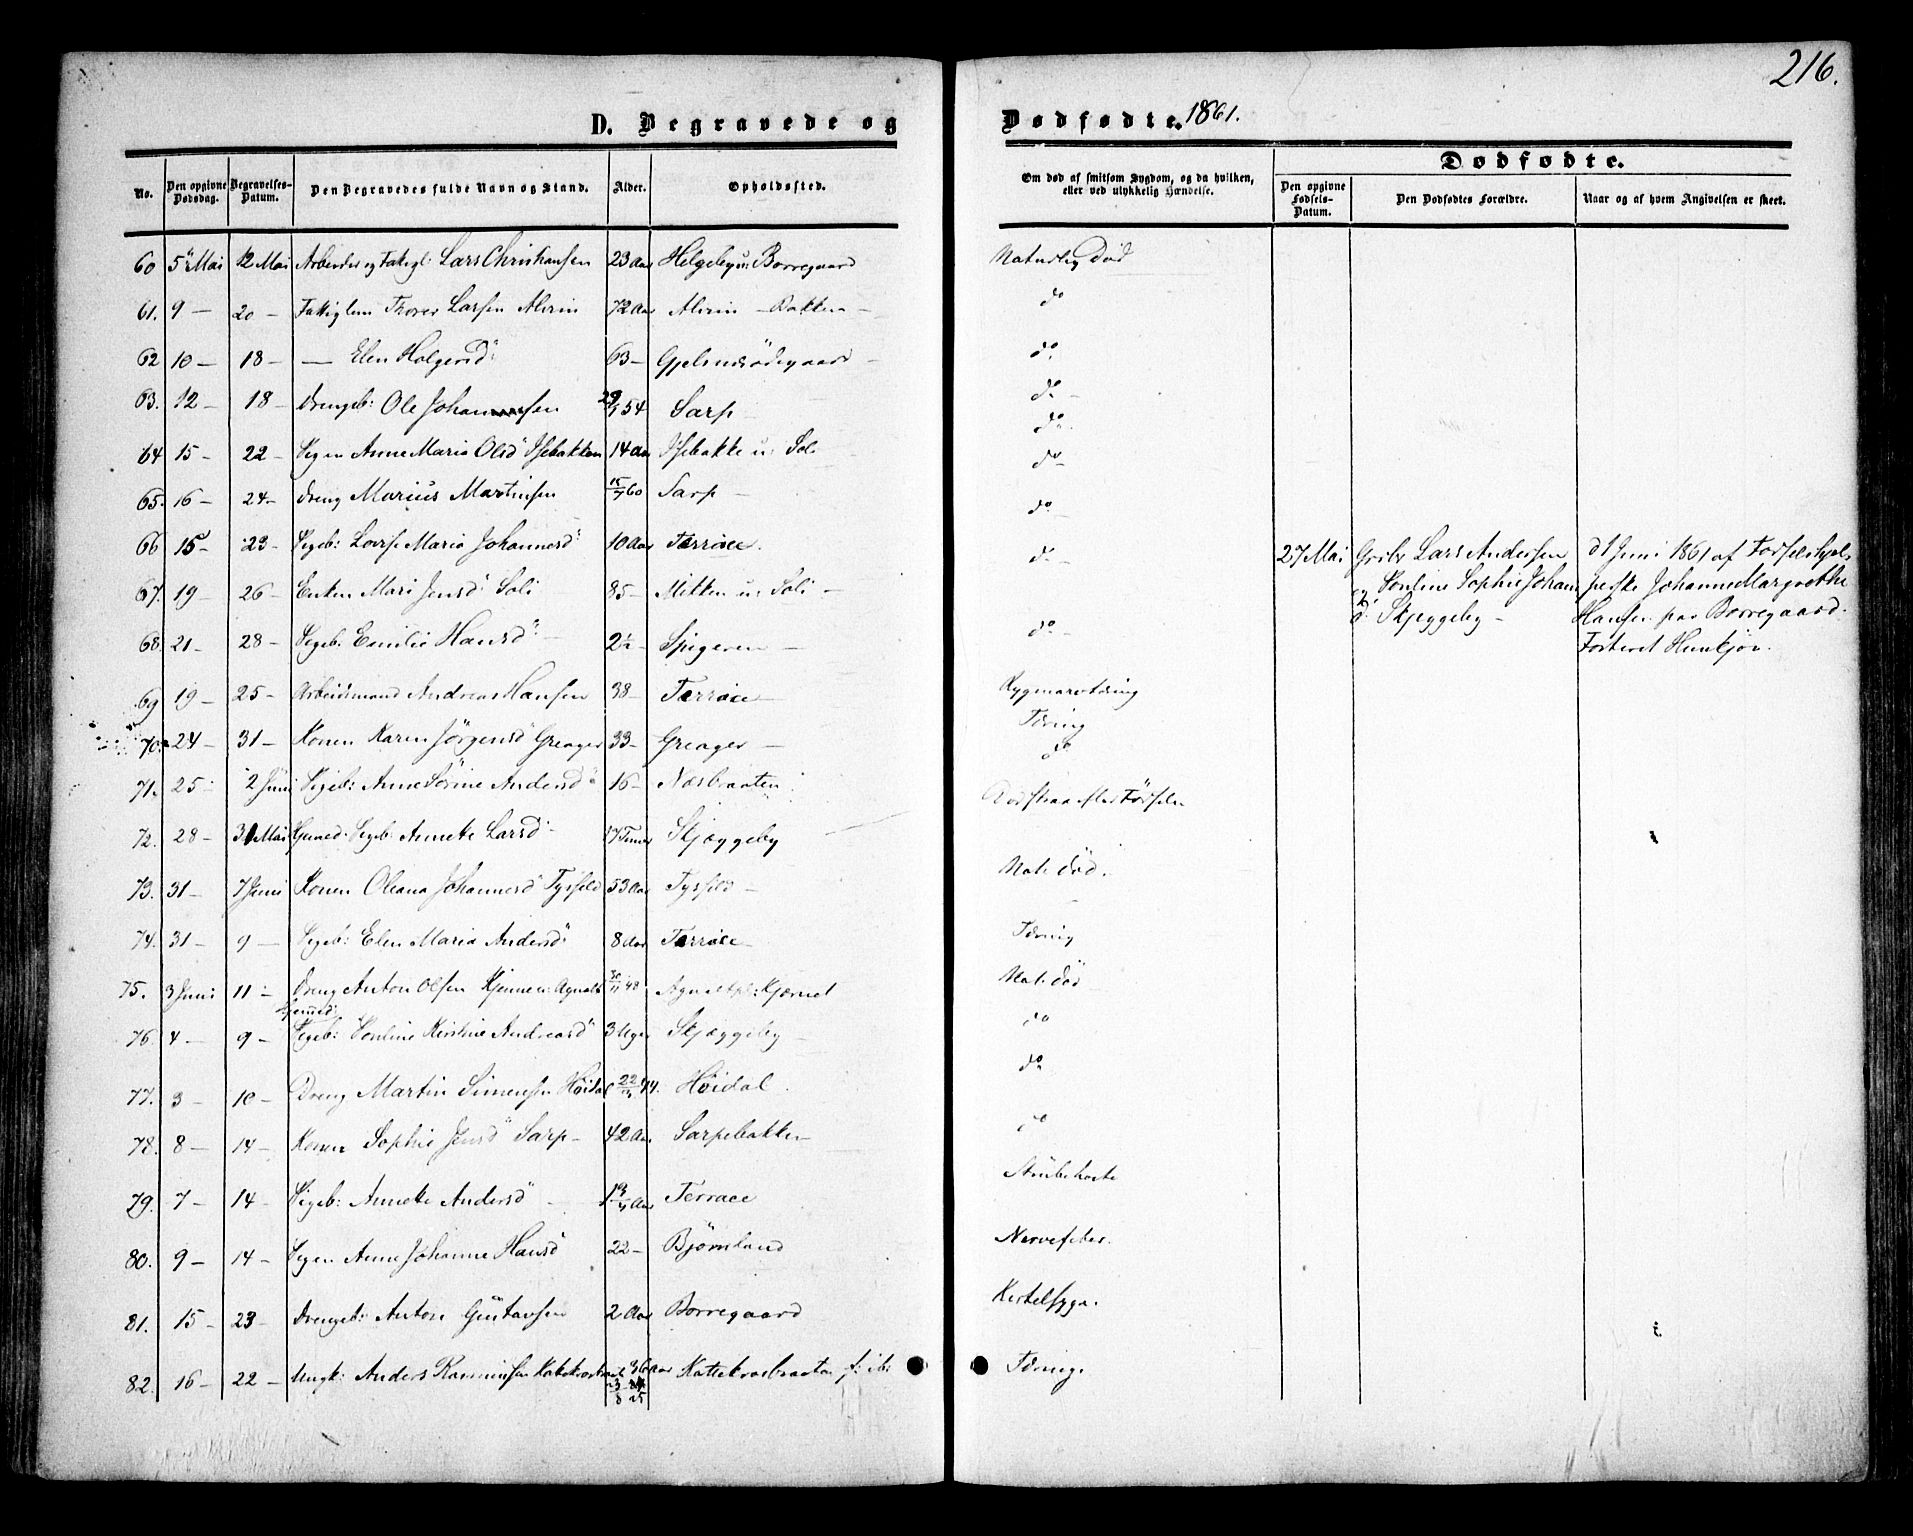 216.
D. Begravede og Dødfødte. 1861.
No. Den opgivne Dødsdag. Begravelses-Datum. Den Begravedes fulde Navn og Stand. Alder. Opholdssted.
Om død af smitsom Sygdom, og da hvilken, eller ved ulykkelig Hændelse.
Dødfødte.
Den opgivne Fødsels-Datum. Den Dødfødtes Forældre. Naar og af hvem Angivelsen er skeet.
60 5 Mai 12 Mai Arbeider og Fattigl: Lars Christiansen 23 Aar Helgeby u: Borregaard Naturlig Død
61. 9 — 20 — Fattiglem Thorer Larsen Alvim 72 Aar Alvim — Bakken — do
62 10 — 18 — — Elen Holgersd: 63 — do
63. 12 — 18 — Drengeb: Ole Johannessen 54 Sarp — do —
64 15 — 22 — Pigen Anne Maria Olsd Isebakken 14 Aar Isebakke u: Soli do.
65. 16 — 24 — Dreng Marius Martinsen 60 Sarp — do —
66 15 — 23 — Pigeb: Lovise Maria Johannesd: 10 Aar Terrace. do —
67. 19 — 26 — Enken Mari Jensd: Soli 85 — Mitten u: Soli — do —
68. 21 — 28 — Pigeb: Emilie Hansd: 2½ — Spigeren — do —
27 Mai Grbr Lars Andersen
og Pouline Sophie Johans
d: Skjeggeby —
d 1 Juni 1861 af Fødselshjel-
perske Johanne Margrethe
Hansen paa Borregaard.
Fosteret Hunkjøn.
69 19 — 25 — Arbeidsmand Andreas Hansen 38 — Terrace — Rygmarvstæring
70. 24 — 31 — Konen Karen Jörgensd Greager 33 — Greager — Tæring
71. 25 — 2 Juni Pigeb: Anne Sörine Andersd 16 — Næsbraaten do
72. 28 — 31 Mai Hjemmed. Pigeb: Annette Larsd: 17 Timer Skjeggeby Død strax efter Fødselen
73. 31 — 7 Juni Konen Oleana Johannesd Tyrfeld 53 Aar Tyrfeld — Nat: Død.
74. 31 — 9 — Pigeb: Elen Maria Andersd: 8 Aar Terrace — Tæring
75. 3 Juni 11 — Dreng Anton Olsen 30/11 48 Nat: Død
76. 4 — 9 — Hjemmed: Pigeb: Pouline Kirstine Andreasd 3 Uger Skjæggeby — do
77. 3 — 10 — Dreng Martin Simensen Höidal Höidal. do
78. 8 — 14 — Konen Sophie Jensd Sarp — 42 Aar Sarpebakken do
79. 7 — 14 — Pigeb: Annette Andersd — Terrace Strubehoste
80. 9 — 14 — Pigen Anne Johanne Hansd 22 — Bjørnland Nervefeber.
81. 15 — 23 — Drengeb: Anton Gustavsen 2 Aar Borregaard Kertelsyge.
82. 16 — 22 — Ungk: Anders Rasmussen 36 Aar Kattekrosbraaten f: ib: Tæring.